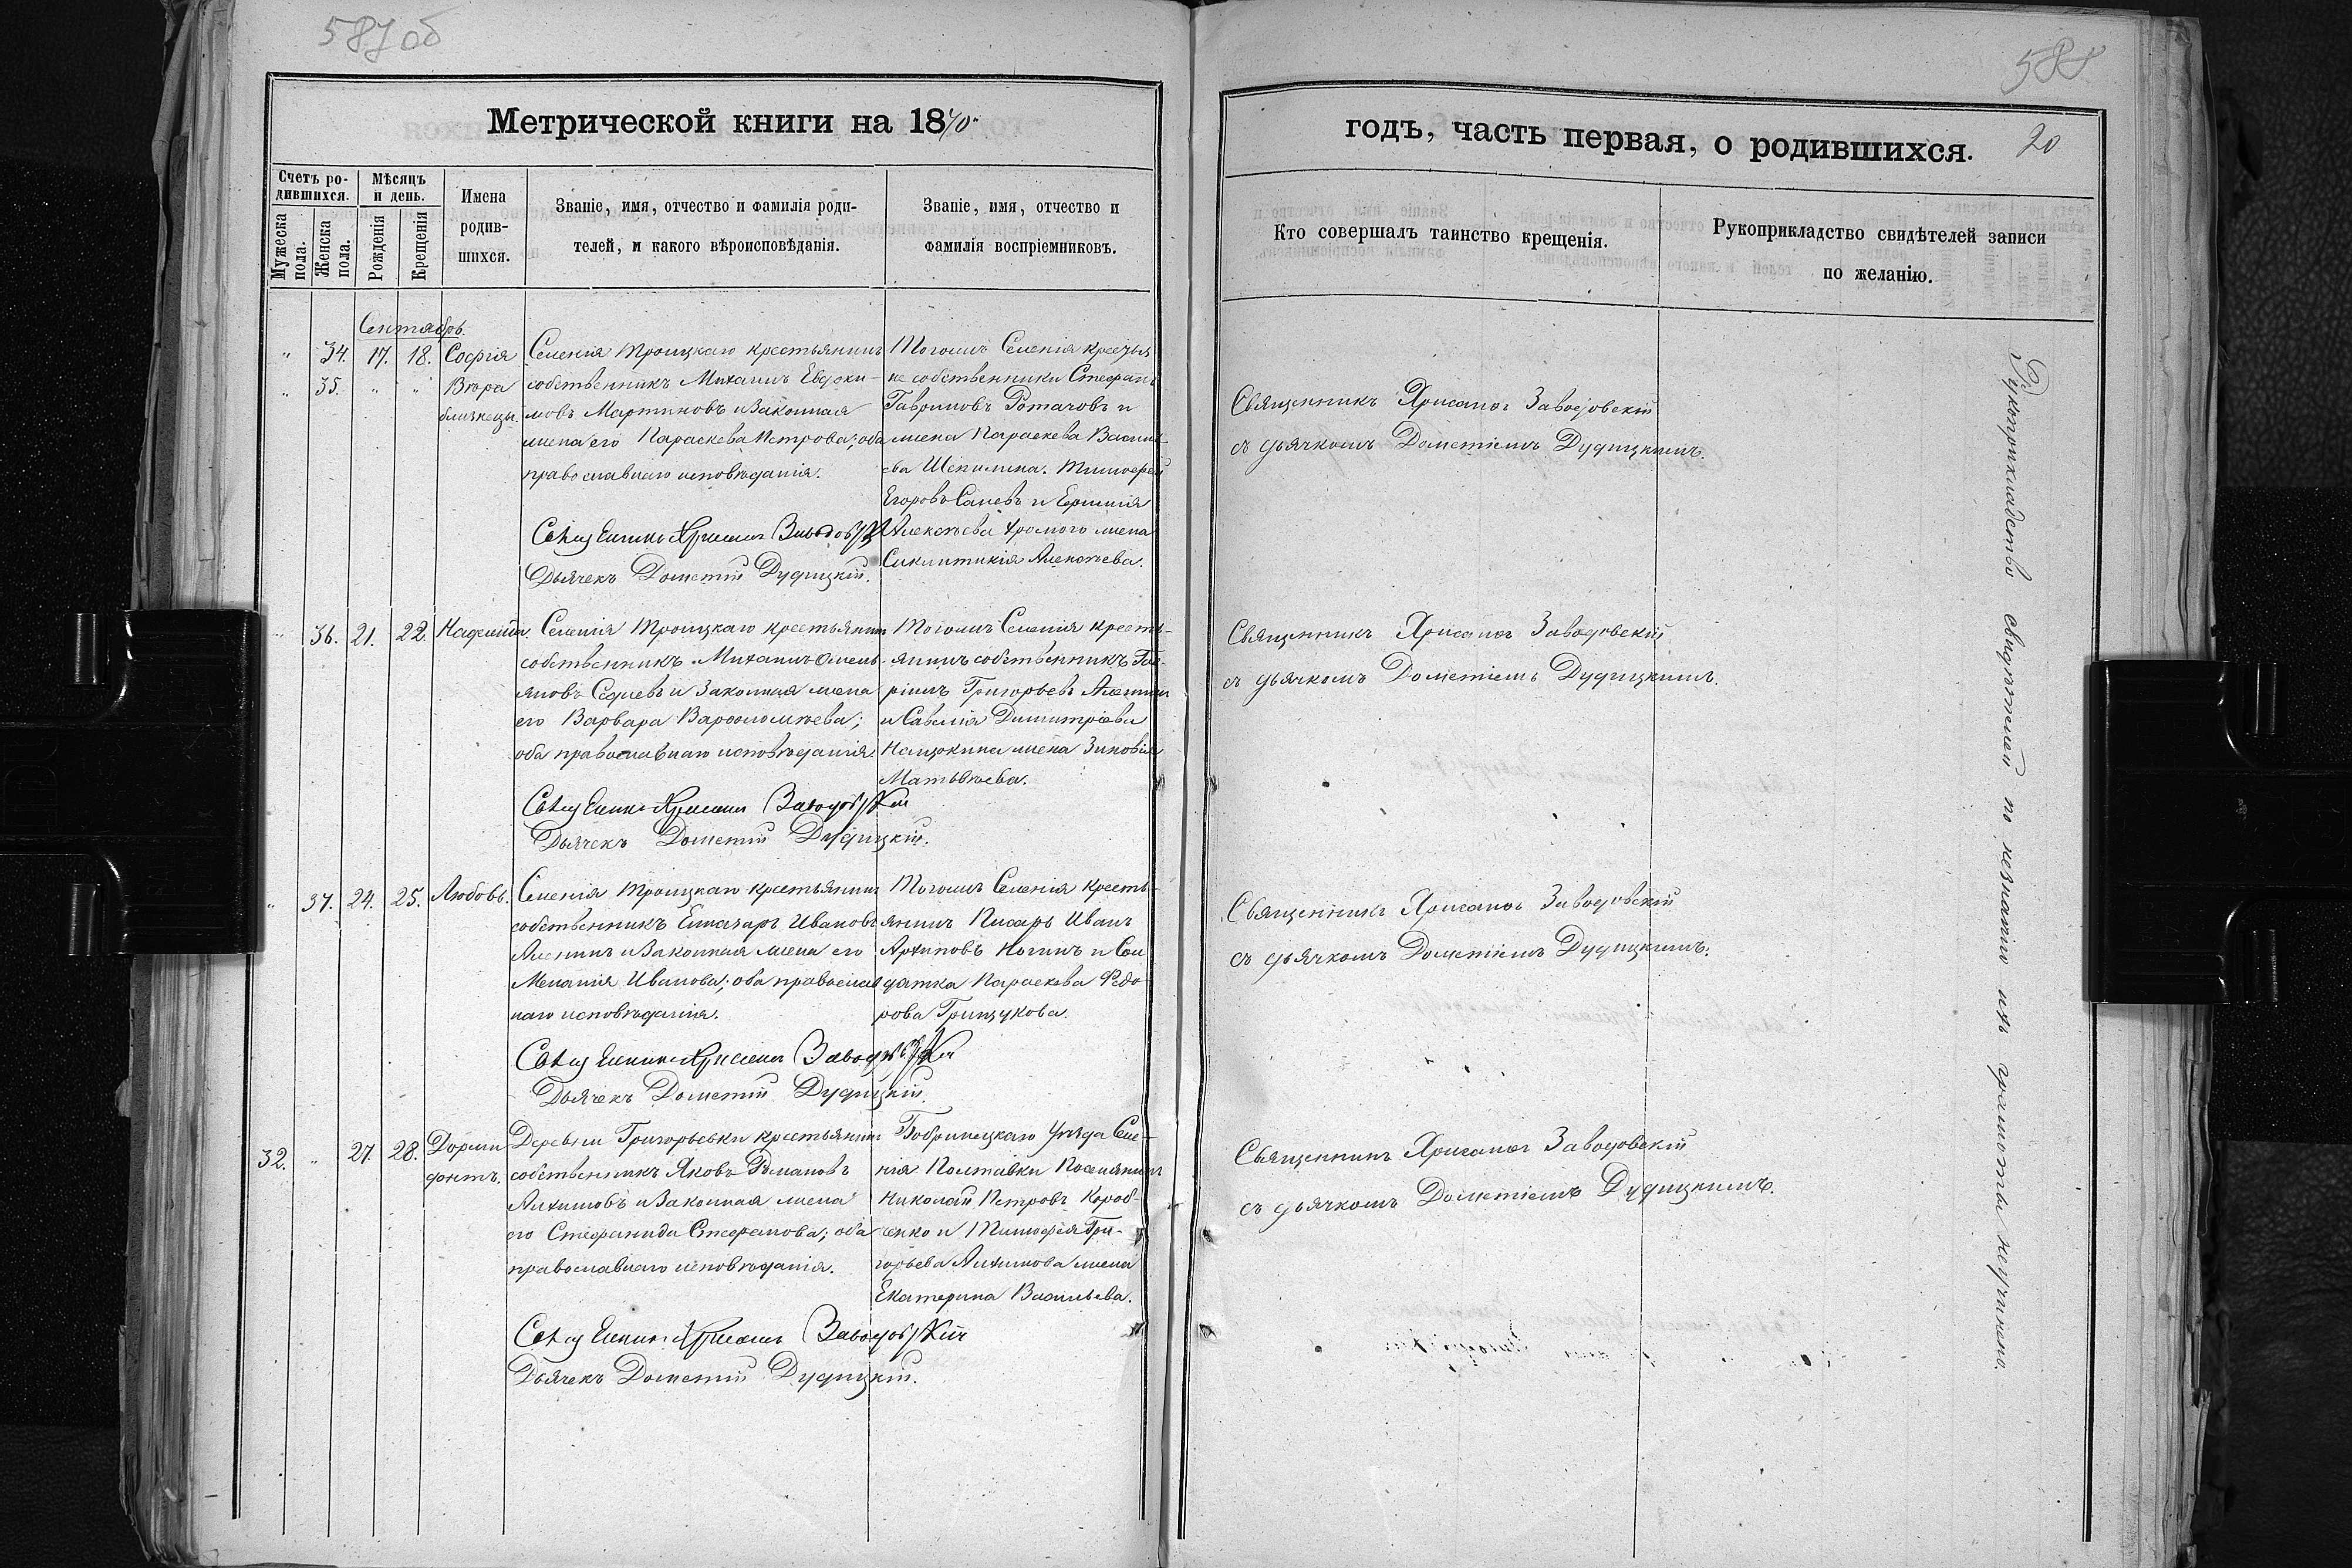 587 об
Метрической книги на 1870.
Счетъ ро-
дившихся.
Мѣсяцъ
и день.
Мужеска
пола.
Женска
пола.
Рожденія
Крещенія
Имена
родив-
шихся.
Званіе, имя, отчество и фамилія роди-
телей, и какого вѣроисповѣданія.
Званіе, имя, отчество и
фамилія воспріемниковъ.
Сентябрь.
" 34. 17. 18. Софія
" 35. " " Вѣра
близнецы.
Селенія Троицкаго крестьянинъ
собственникъ Михаилъ Евдоки-
мовъ Мартиновъ и Законная
жена его Параскева Петрова; оба
православнаго исповѣданія.
Священникъ Хрисанѳъ Заводовскій
Дьячекъ Дометій Дудицкій.
Тогожъ Селенія крестья
не собственники Стефанъ
Гавриловъ Ротачовъ и
жена Параскева Василь-
ева Тимофей
Егоровъ и
Алексѣева Хромого жена
Алексѣева.
" 36. 21. 22. Надежда.
Селенія Троицкаго крестьянинъ
собственникъ Михаилъ Омель-
яновъ Седневъ и Законная жена
его Варвара Варѳоломѣева;
оба православнаго исповѣданія.
Священникъ Хрисанѳъ Заводовскій
Дьячекъ Дометій Дудицкій.
Тогожъ Селенія кресть-
янинъ собственникъ Гав-
ріилъ Григорьевъ Алешинъ
и Савелія Димитріева
Нащокина жена Зиновія
Матвѣева.
" 37. 24. 25. Любовь.
Селенія Троицкаго крестьянинъ
собственникъ Елиазаръ Ивановъ
Алешинъ и Законная жена его
Меланія Иванова; оба православ
наго исповѣданія.
Священникъ Хрисанѳъ Заводовскій
Дьячекъ Дометій Дудицкій.
Тогожъ Селенія кресть-
янинъ Писарь Иванъ
Архиповъ Ногинъ и Сол
датка Параскева Ѳедо-
рова Грищукова.
32. " 27. 28. Дорми
донтъ.
Деревни Григорьевки крестьянинъ
собственникъ Яковъ Романовъ
Алхимовъ и Законная жена
его Стефанида Стефанова; оба
православнаго исповѣданія.
Священникъ Хрисанѳъ Заводовскій
Дьячекъ Дометій Дудицкій.
Бобринецкаго Уѣзда Селе-
нія Полтавки Поселянинъ
Николай Петровъ Короб-
ченко и Тимофея Гри-
горьева Алхимова жена
Екатерина Васильева.
588
годъ, часть первая, о родившихся. 20
Кто совершалъ таинство крещенія.
Рукоприкладство свидѣтелей записи
по желанію.
Священникъ Хрисанѳъ Заводовскій
съ дьячкомъ Дометіемъ Дудицкимъ.
Священникъ Хрисанѳъ Заводовскій
съ дьячкомъ Дометіемъ Дудицкимъ.
Священникъ Хрисанѳъ Заводовскій
съ дьячкомъ Дометіемъ Дудицкимъ.
Священникъ Хрисанѳъ Заводовскій
съ дьячкомъ Дометіемъ Дудицкимъ.
Рукоприкладство свидѣтелей по незнанію ихъ грамоты неучинено.